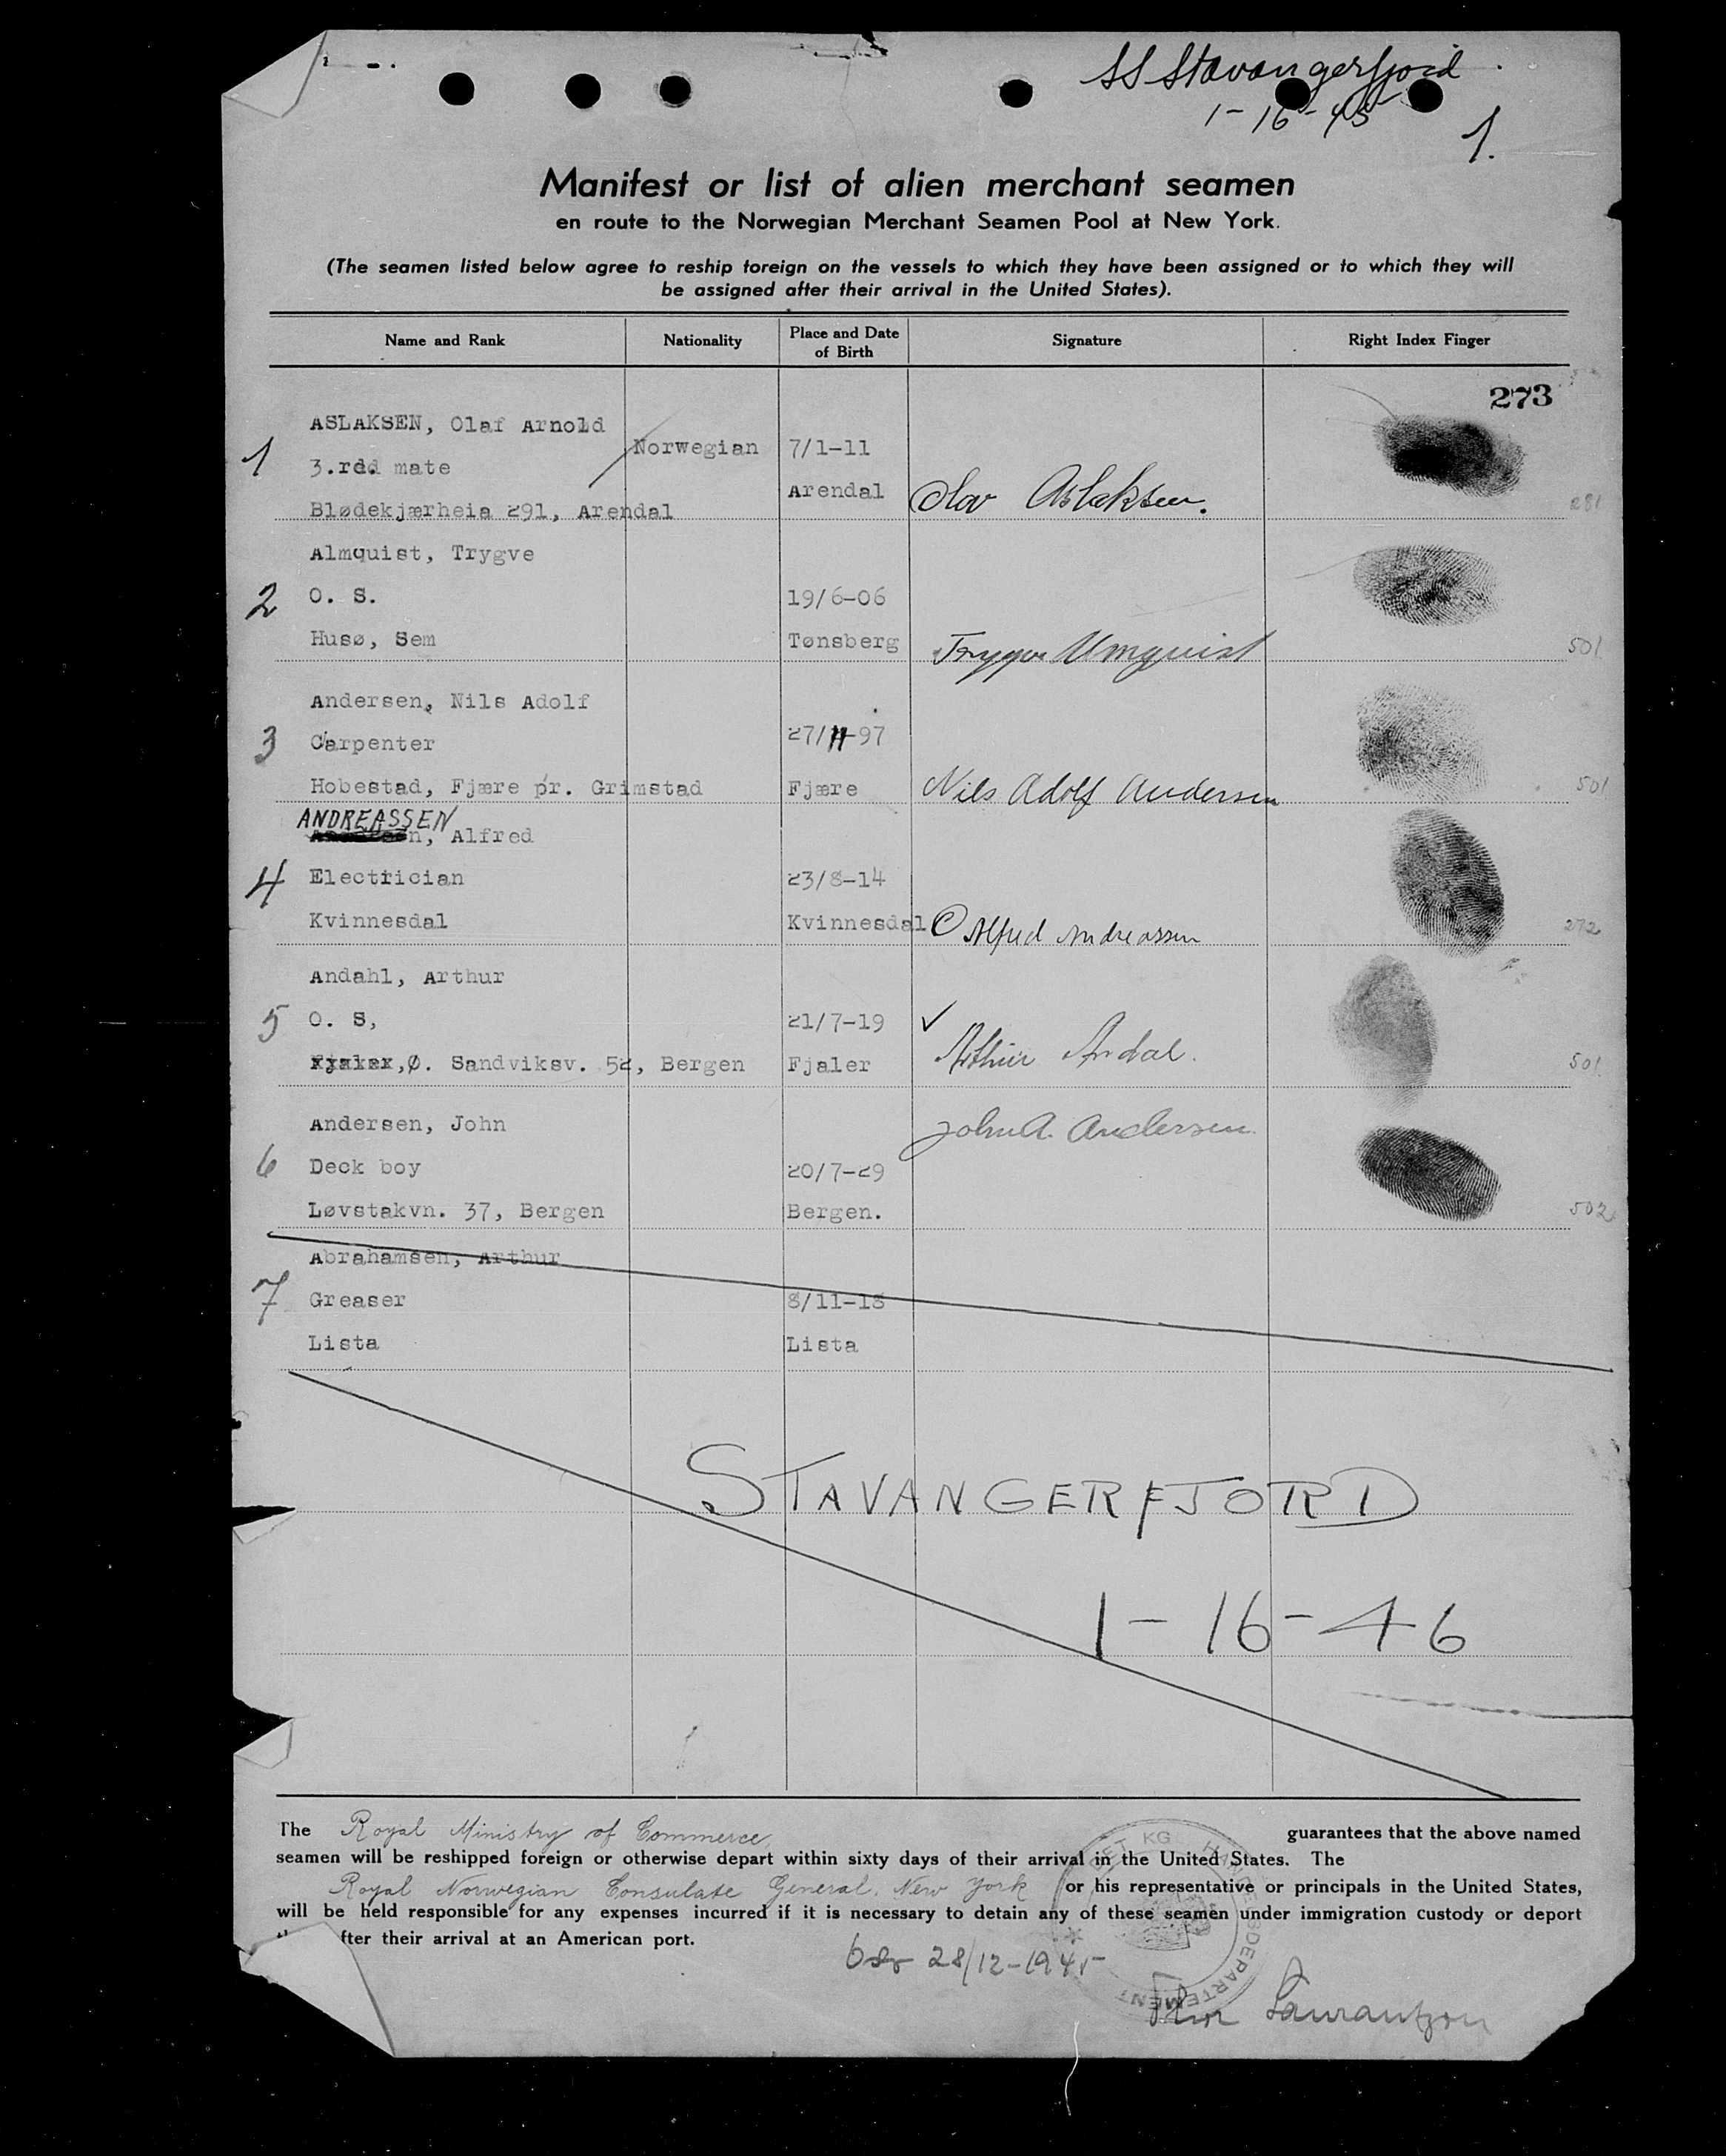 SS Stavangerfjord
1-16-45
1.
Manifest or list of alien merchant seamen
en route to the Norwegian Merchant Seamen Pool at New York.
(The seamen listed below agree to reship foreign on the vessels to which they have been assigned or to which they will
be assigned after their arrival in the United States).
Name and Rank Nationality Place and Date of Birth Signature Right Index Finger
273
ASLAKSEN, Olaf Arnold
1 3.rdd mate Norwegian 7/1-11
Arendal
Blødekjærheia 291, Arendal Olav Aslaksen. 281
Almquist, Trygve
2 O. S. 19/6-06
Husø, Sem Tønsberg Trygve Almquist 501
Andersen, Nils Adolf
3 Carpenter 27/11-97
Hobestad, Fjære pr. Grimstad Fjære Nils Adolf Andersen 501
ANDREASSEN
n, Alfred
4 Electrician 23/8-14
Kvinnesdal Kvinnesdal Alfred Andreassen 272
Andahl, Arthur
5 O. S, 21/7-19
Fjaler,Ø. Sandviksv. 52, Bergen Fjaler Arthur Andal. 501
Andersen, John John A. Andersen
6 Deck boy 20/7-29
Løvstakvn. 37, Bergen Bergen. 502
Abrahamsen, Arthur
7 Greaser 8/11-18
Lista Lista
STAVANGERFJORD
1-16-46
The Royal Ministry of Commerce, guarantees that the above named
seamen will be reshipped foreign or otherwise depart within sixty days of their arrival in the United States. The
Royal Norwegian Consulate General, New York or his representative or principals in the United States,
will be held responsible for any expenses incurred if it is necessary to detain any of these seamen under immigration custody or deport
fter their arrival at an American port.
28/12-1945
DET KG HANDELSDEPARTEMENT